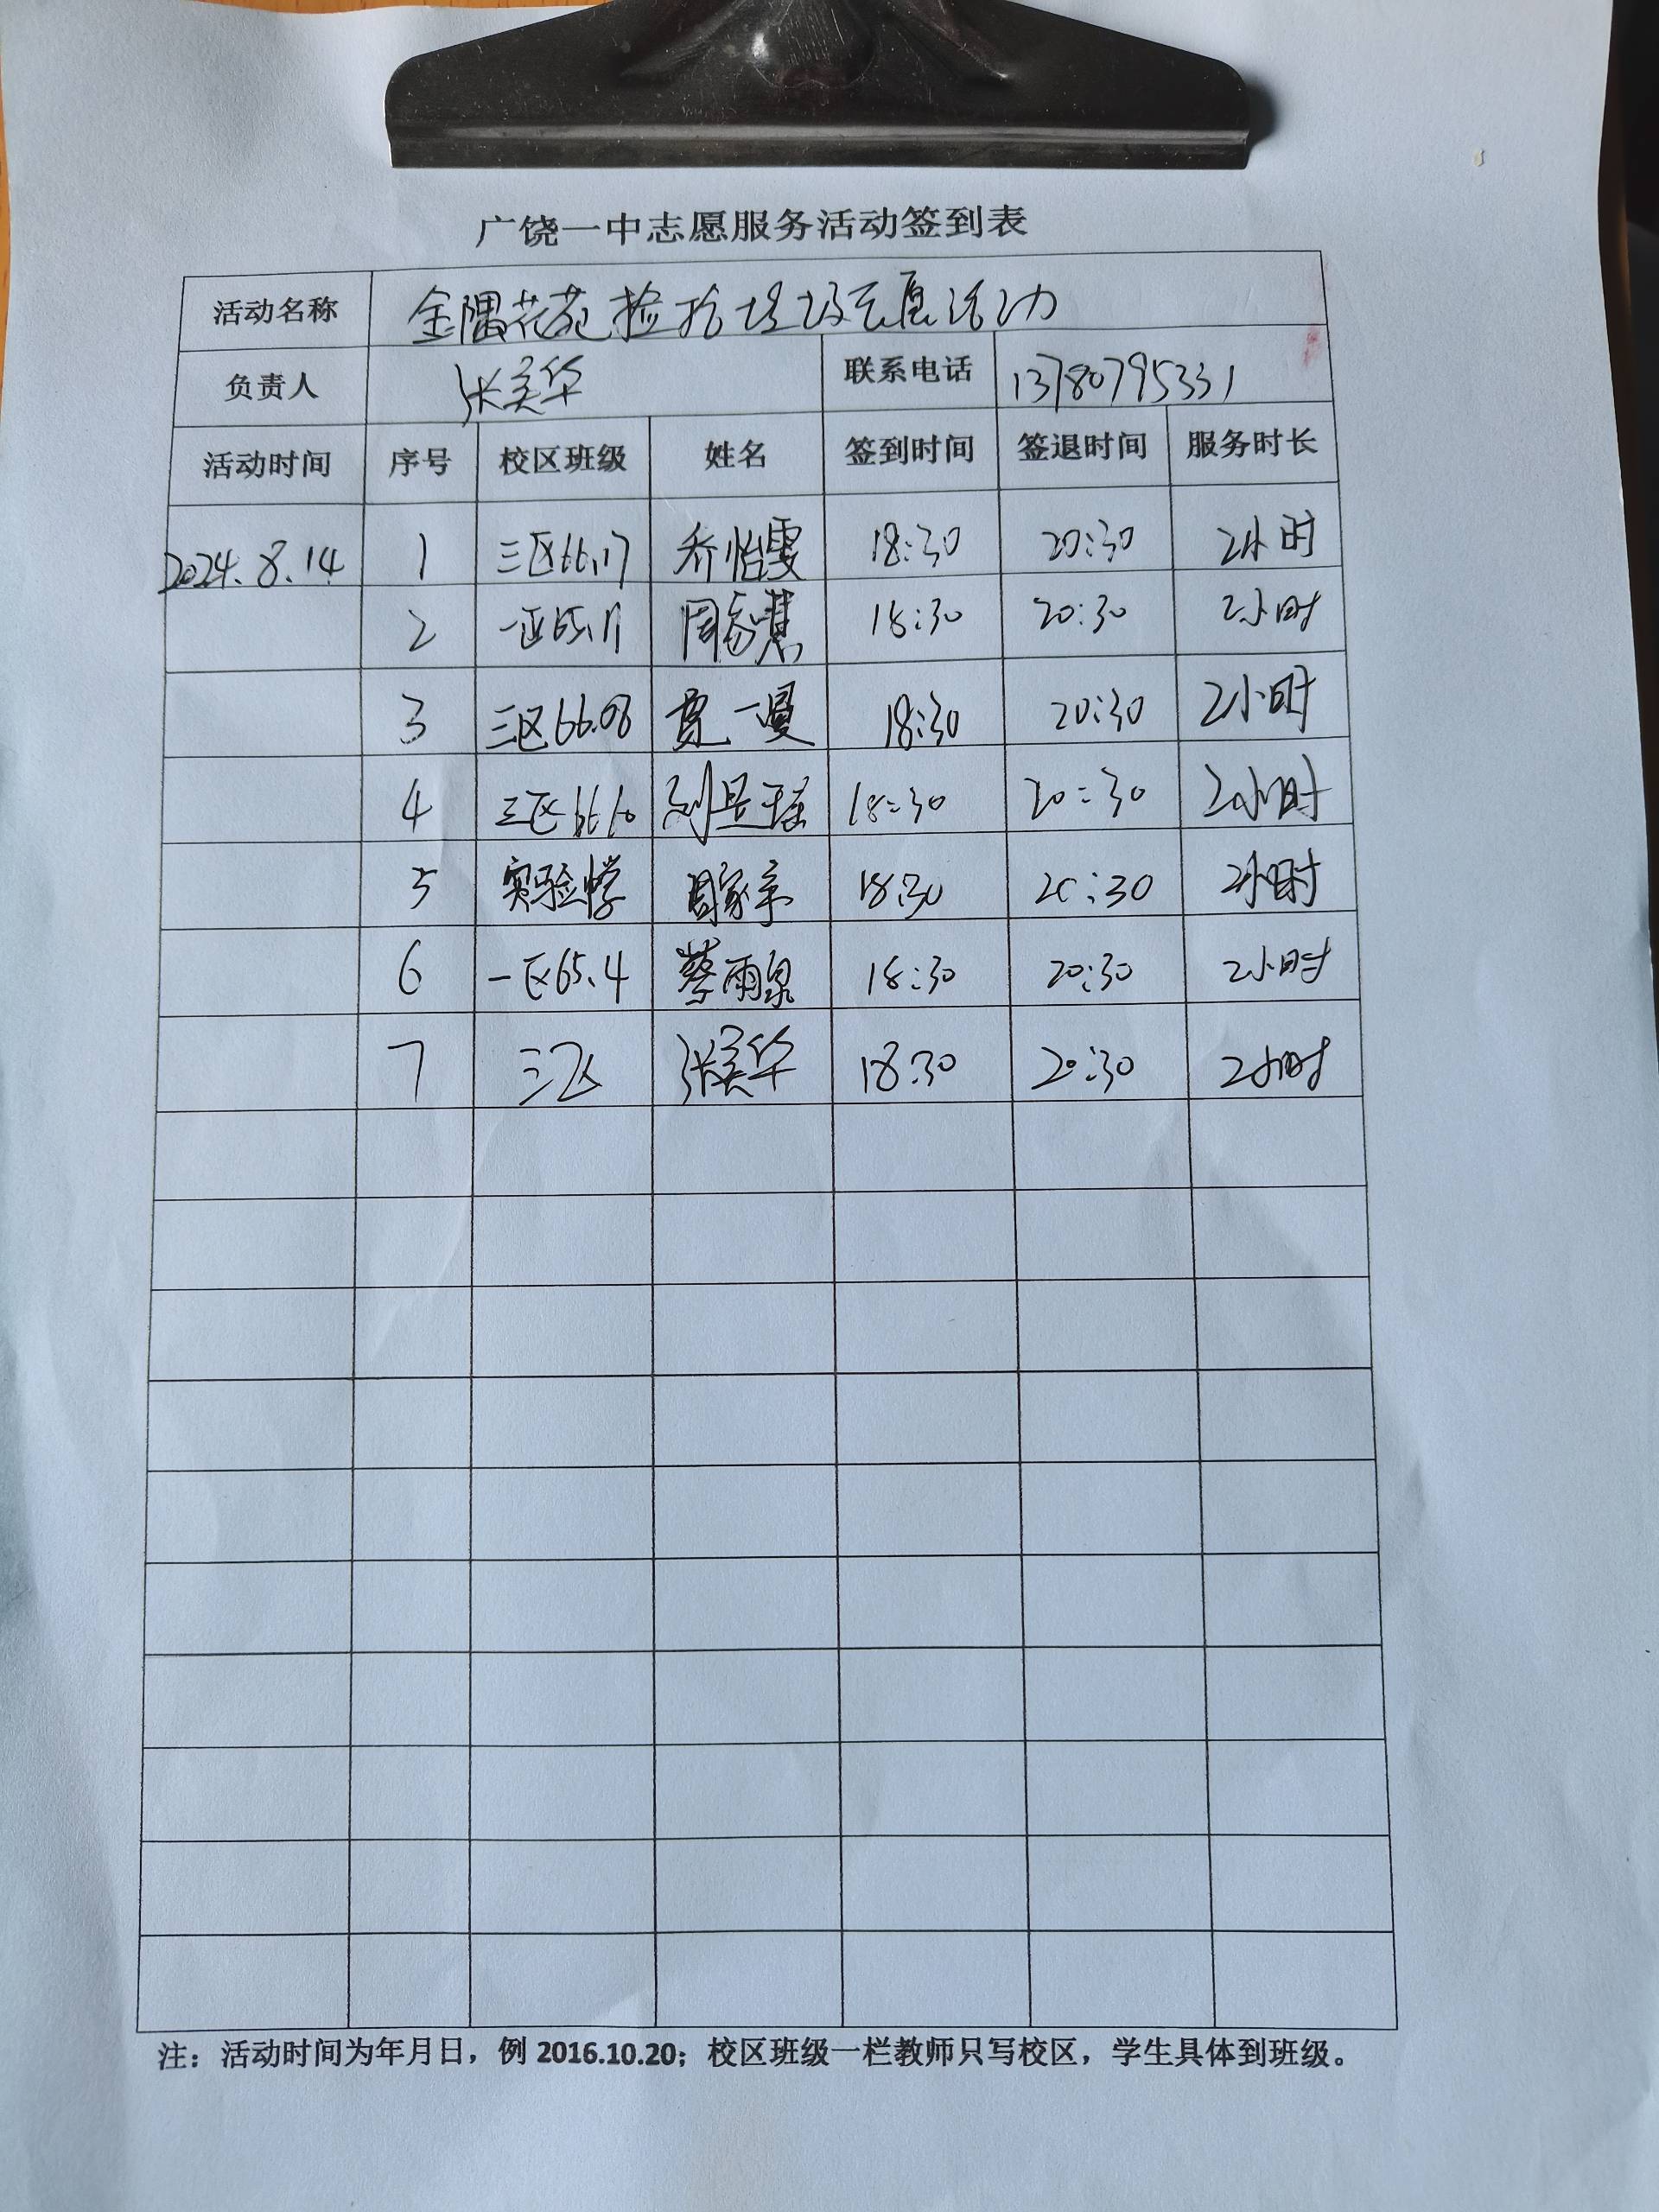 广饶一中志愿服务活动签到表
活动名称 金隅花苑捡拾垃圾志愿活动
负责人 张美华 联系电话 13780795331
活动时间 序号 校区班级 姓名 签到时间 签退时间 服务时长
2024.8.14 1 三区66.17 乔怡雯 18:30 20:30 2小时
2 一区65.11 18:30 20:30 2小时
3 三区66.08 贾一曼 18:30 20:30 2小时
4 三区66.10 刘昱瑶 18:30 20:30 2小时
5 实验中学 周家 18:30 20:30 2小时
6 一区65.4 蔡雨泉 18:30 20:30 2小时
7 三区 张美华 18:30 20:30 2小时
注：活动时间为年月日，例 2016.10.20；校区班级一栏教师只写校区，学生具体到班级。